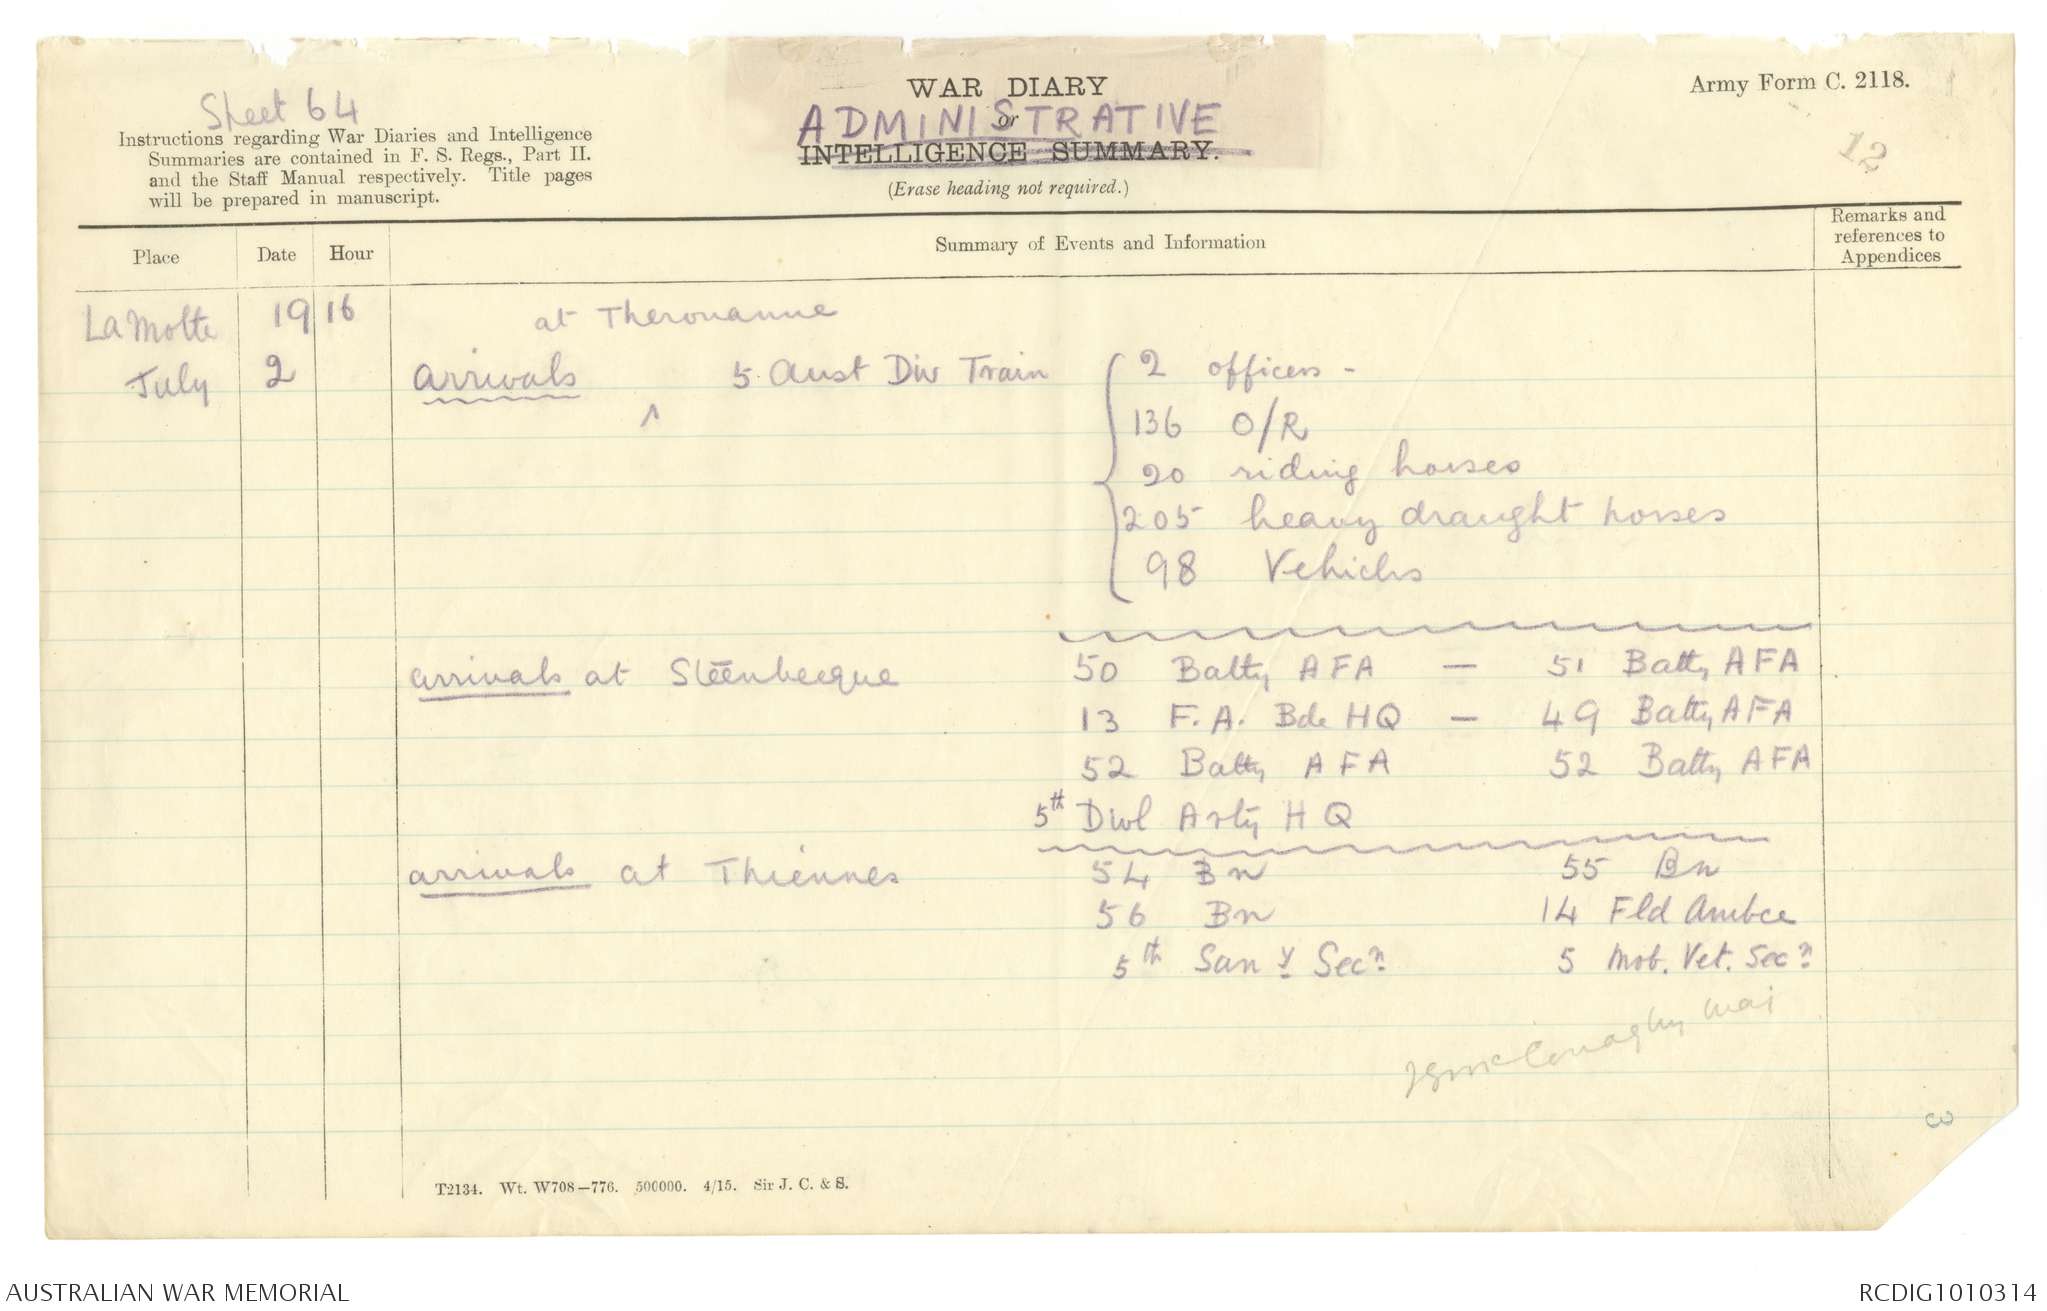 Sheet 64
WAR DIARY
Army Form C. 2118.
ADMINISTRATIVE
or
INTELLIGENCE SUMMARY.
(Erase heading not required.)
12
Instructions regarding War Diaries and Intelligence
Summaries are contained in F. S. Regs., Part II.
and the Staff Manual respectively. Title pages
will be prepared in manuscript.
Place Date Hour Summary of Events and Information Remarks and
references to
Appendices
La Motte 1916 at Therouanne
July 2 arrivals ^ 5. Aust Div Train 2 officers -
136 O/R
20 riding horses
205 heavy draught horses
98 Vehicles
arrivals at Steenbecque 50 Batty AFA — 51 Batty AFA
13 F.A. Bde HQ — 49 Batty AFA
52 Batty AFA 52 Batty AFA
5th Divl Arty HQ
arrivals at Thiennes 54 Bn 55 Bn
56 Bn 14 Fld Ambce
5th Sany Secn 5 Mob. Vet. Secn
McConaghy Maj
3
T2134. Wt. W708—776. 500000. 4/15. Sir J. C. & S.
AUSTRALIAN WAR MEMORIAL
RCDIG1010314